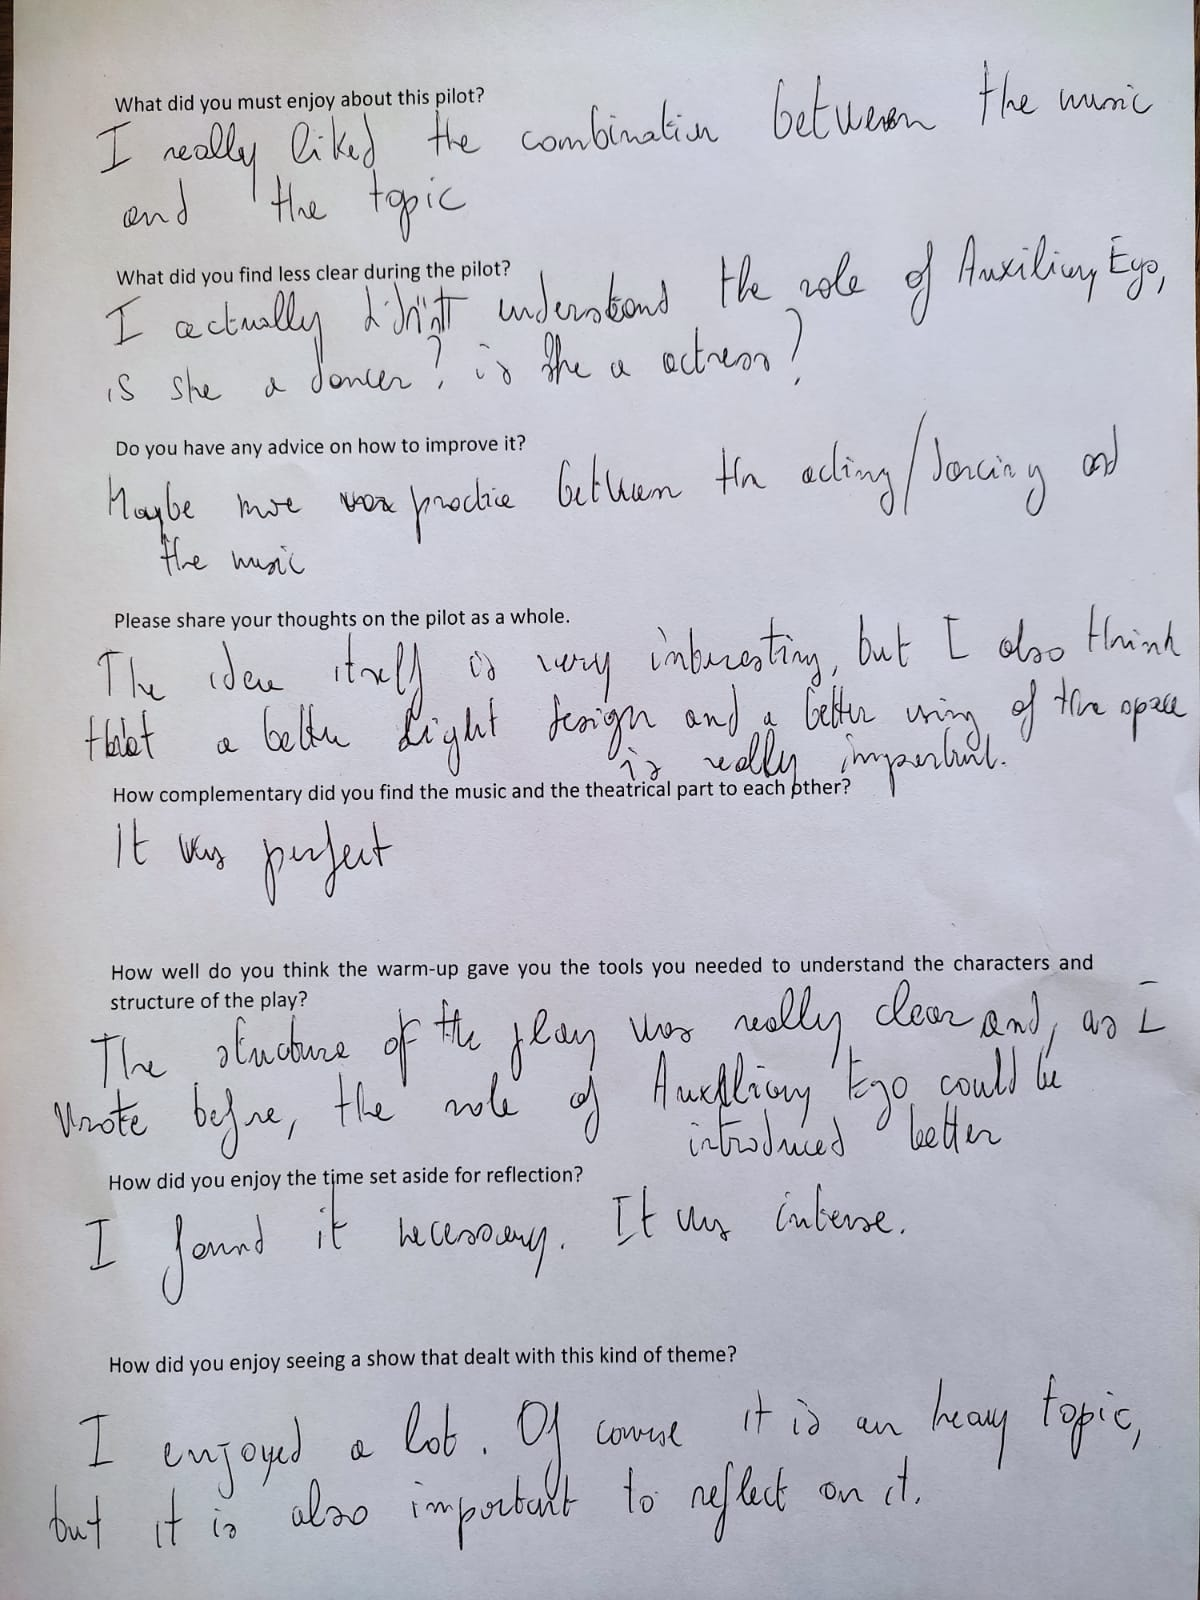 What did you must enjoy about this pilot?
I really liked the combination between the music
and the topic
What did you find less clear during the pilot?
I actually didn't understand the role of Auxiliary Ego,
is she a dancer? is she a actress?
Do you have any advice on how to improve it?
Maybe more practice between the acting/dancing and
the music
Please share your thoughts on the pilot as a whole.
The idea itself is very interesting, but I also think
that a better light design and a better using of the space
is really important.
How complementary did you find the music and the theatrical part to each other?
It was perfect
How well do you think the warm-up gave you the tools you needed to understand the characters and
structure of the play?
The structure of the play was really clear and, as I
wrote before, the role of Auxiliary Ego could be
introduced better
How did you enjoy the time set aside for reflection?
I found it necessary. It was intense.
How did you enjoy seeing a show that dealt with this kind of theme?
I enjoyed a lot. Of course it is an heavy topic,
but it is also important to reflect on it.